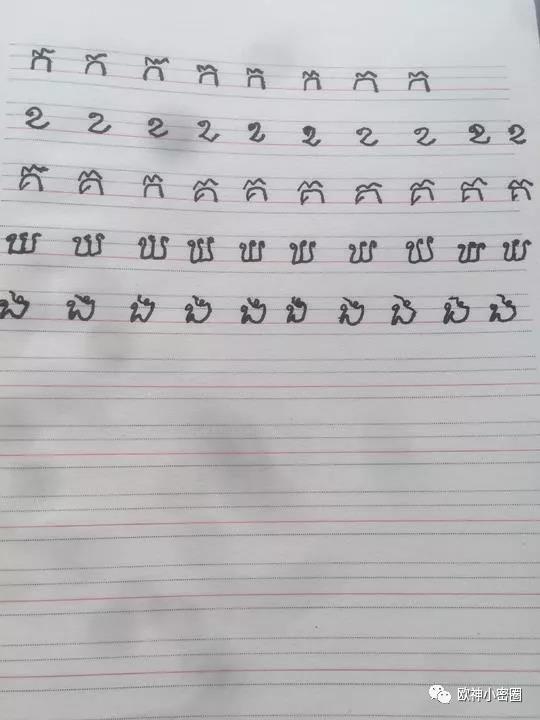 ក ក ក ក ក ក ក ក
ខ ខ ខ ខ ខ ខ ខ ខ ខ ខ
គ គ គ គ គ គ គ គ គ គ
ឃ ឃ ឃ ឃ ឃ ឃ ឃ ឃ ឃ ឃ
ង ង ង ង ង ង ង ង ង ង
欧神小密圈